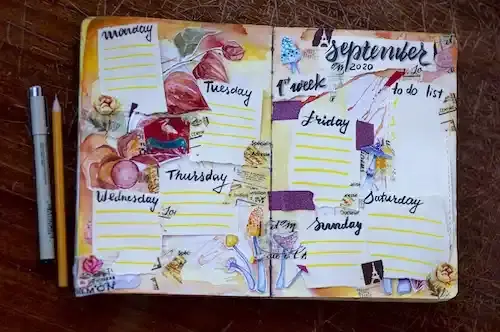 monday
Tuesday
Wednesday
Thursday
september
2020
1st week
to do list
Friday
Saturday
Sunday